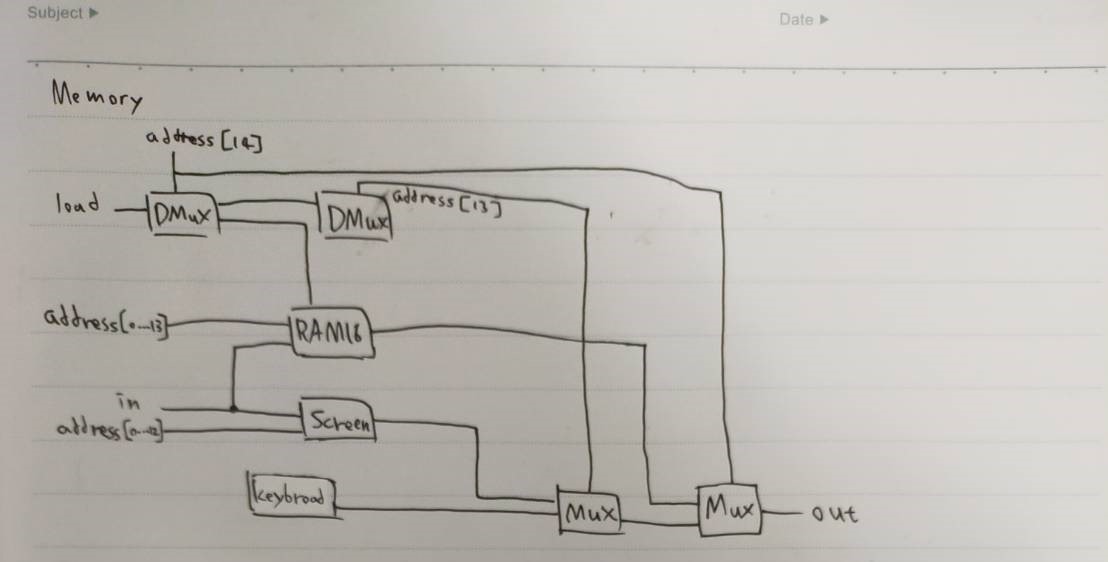 Subject ▶
Date ▶
Memory
address [14]
load
DMux
DMux
address [13]
address[0...13]
RAM16
in
address[0...12]
Screen
keybroad
Mux
Mux
out